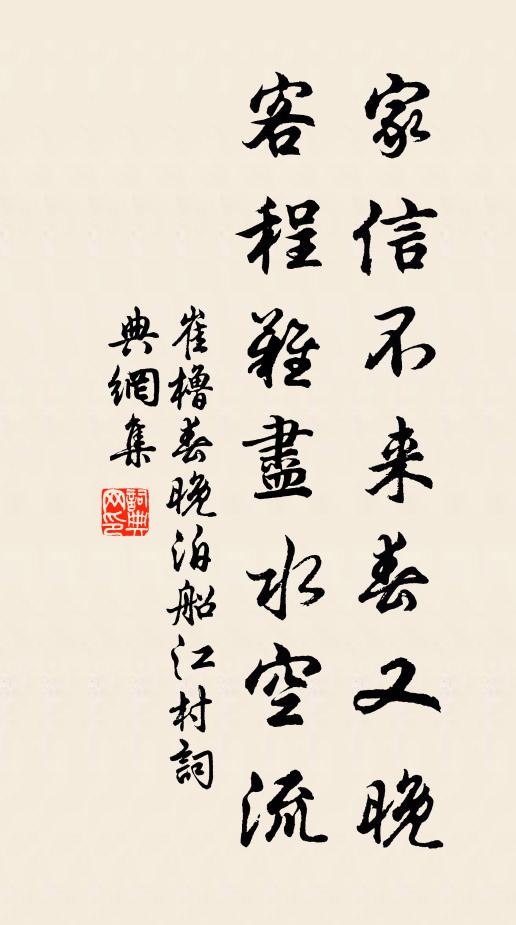 家信不来春又晚
客程難盡水空流
崔櫓春晚泊船江村詞
典網集
詞典网印